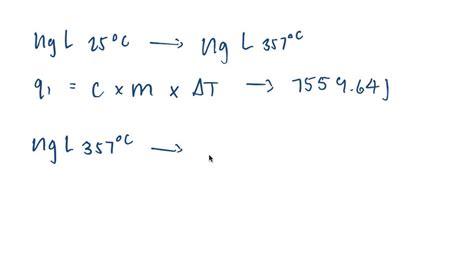 ng L 25°C → ng L 357°C
q₁ = C × m × ΔT → 7559.64j
ng L 357°C →